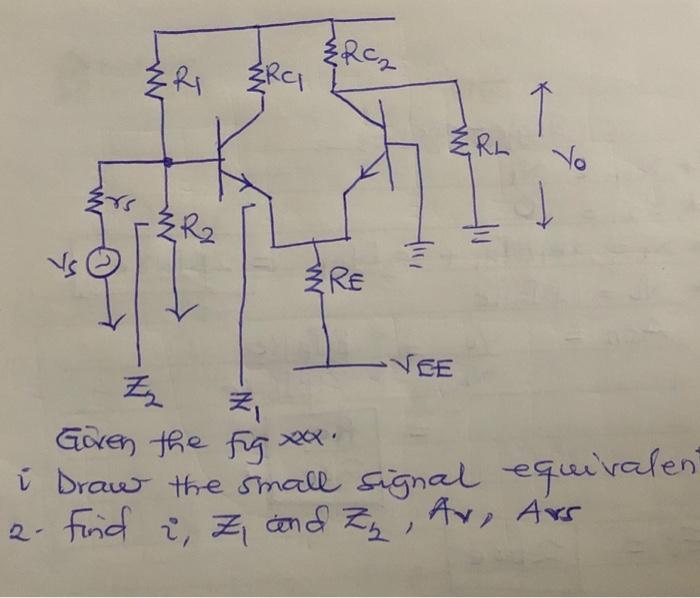 R1
RC1
RC2
RL
Vo
rs
R2
Vs
RE
VEE
Z2
Z1
Given the fig xxx.
i Draw the small signal equivalent
2- find i, Z1 and Z2, Av, Avs